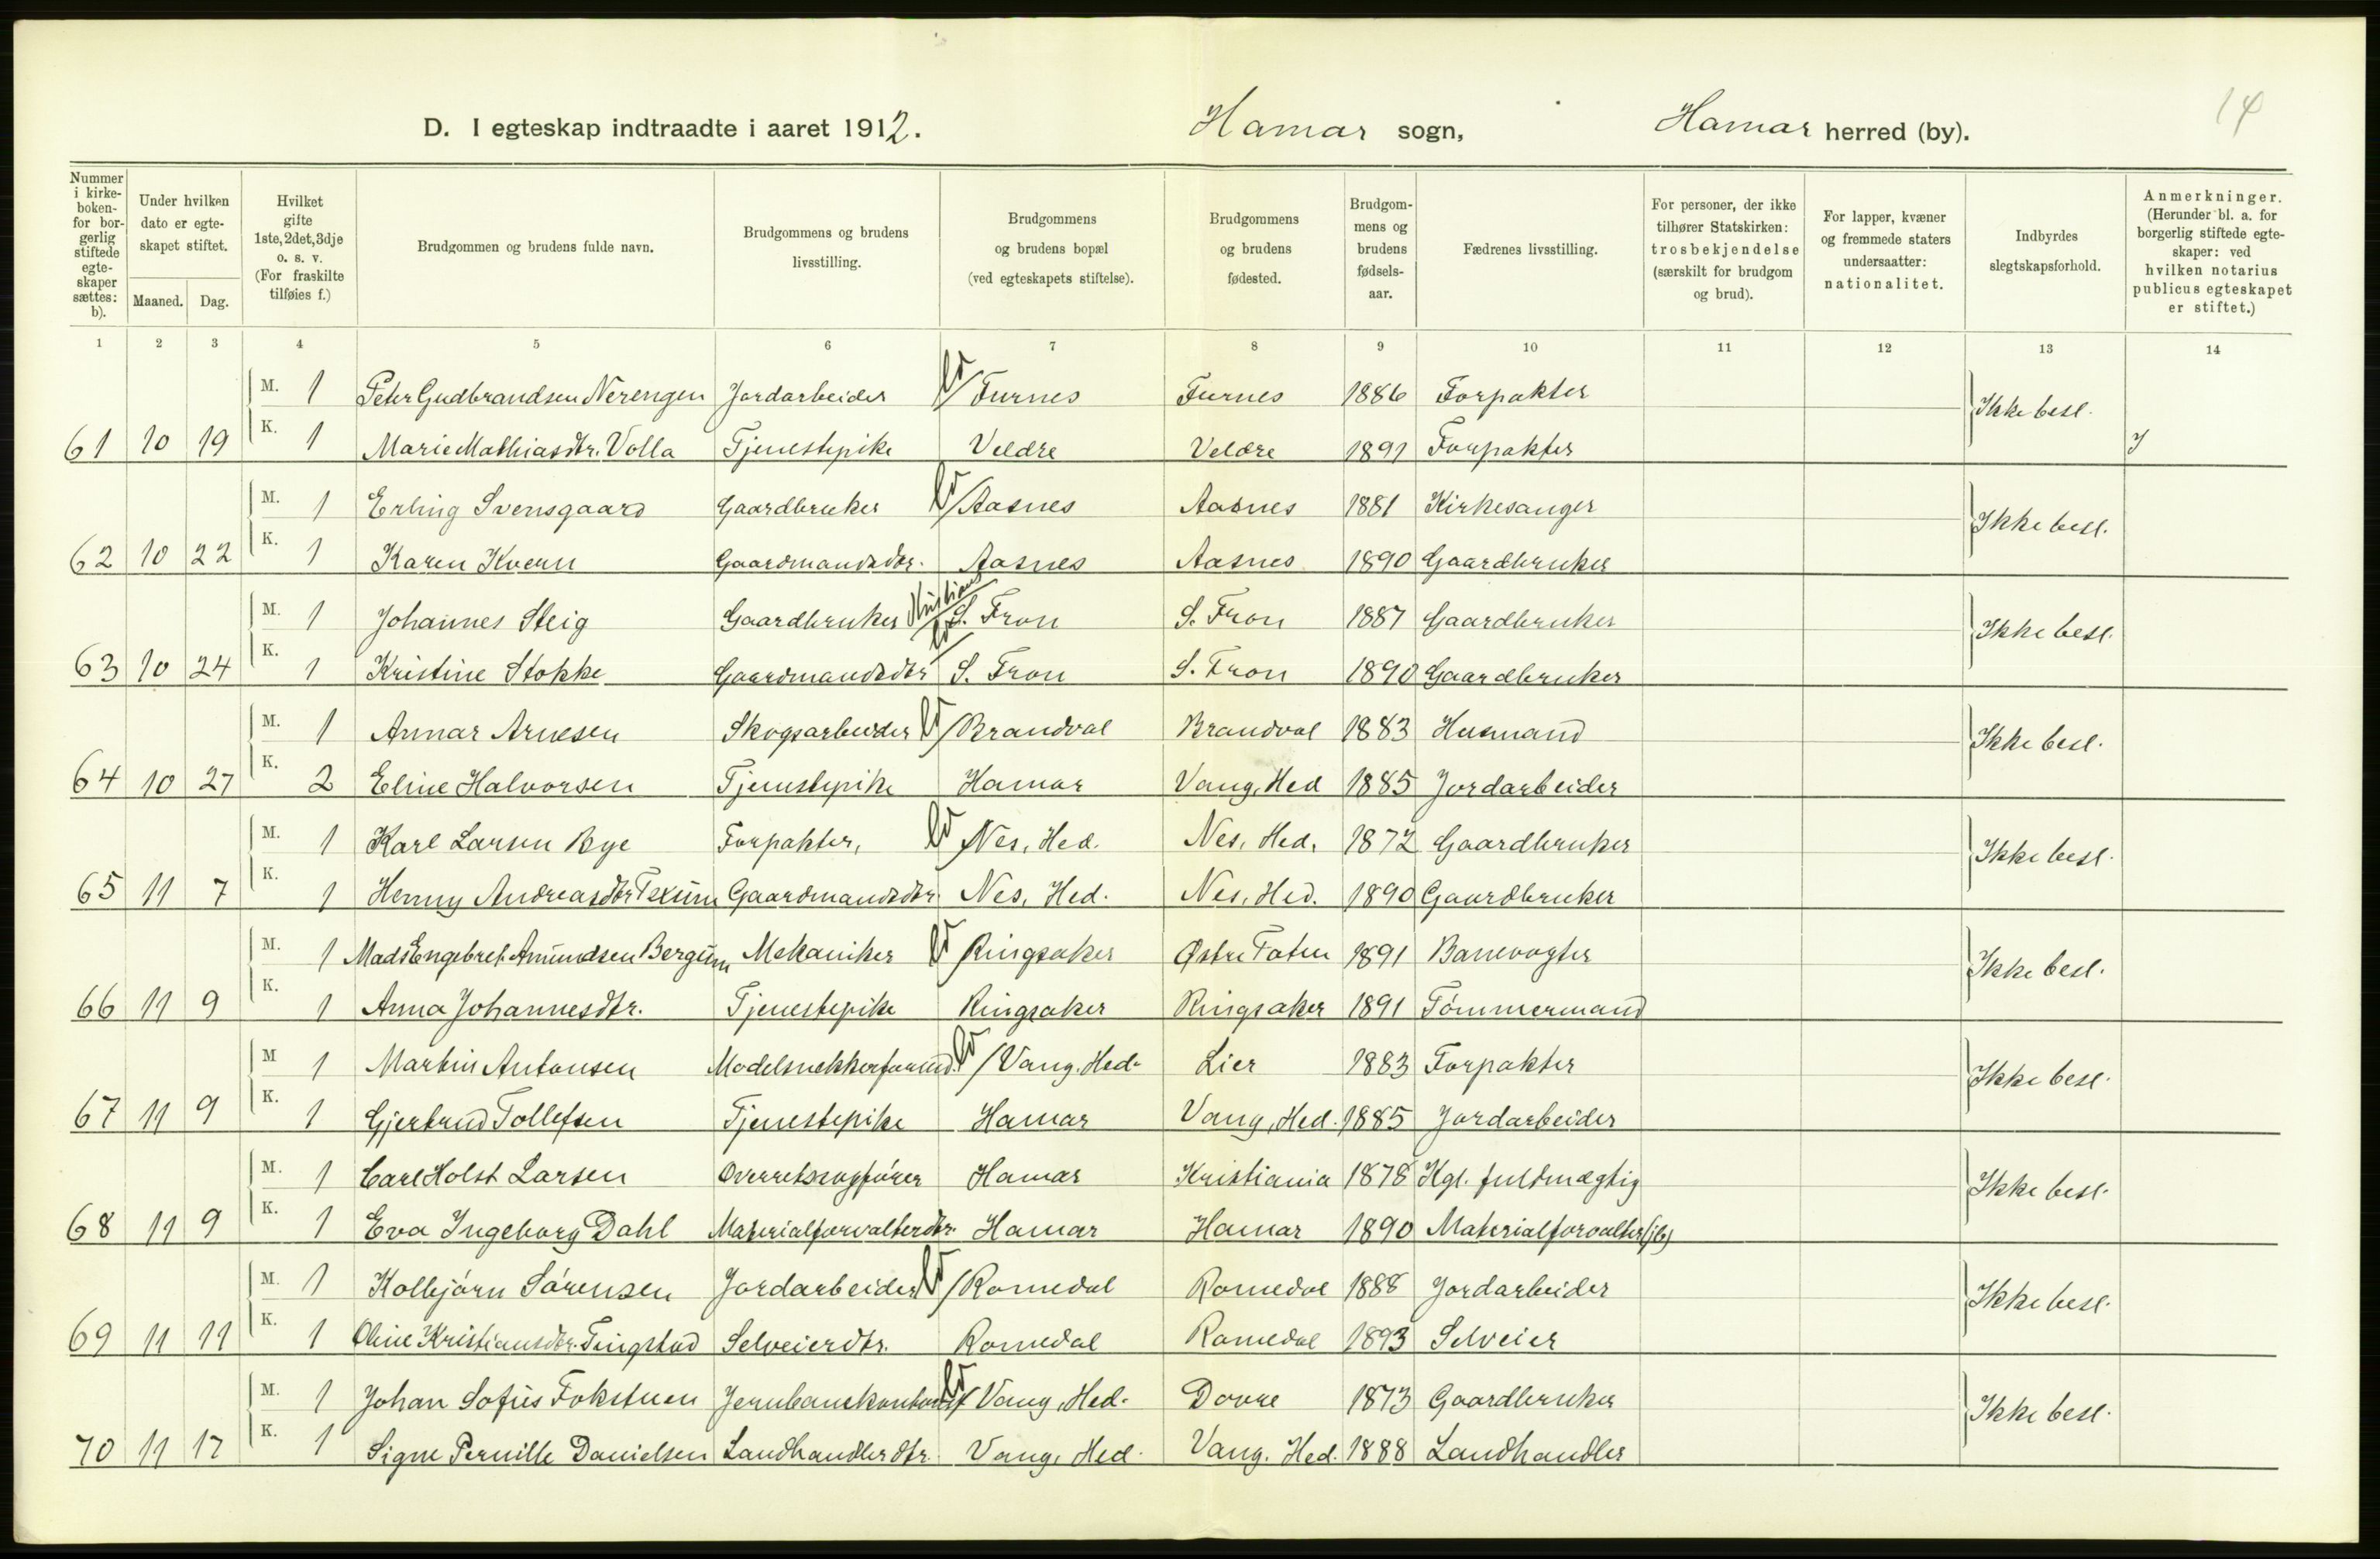 14
D. I egteskap indtraadte i aaret 1912. Hamar sogn, Hamar herred (by).
Nummer i kirke-boken- for bor-gerlig stiftede egte-skaper sættes: b). Under hvilken dato er egte-skapet stiftet. Maaned. Dag. Hvilket gifte 1ste, 2det, 3dje o. s. v. (For fraskilte tilføies f.) Brudgommen og brudens fulde navn. Brudgommens og brudens livsstilling. Brudgommens og brudens bopæl (ved egteskapets stiftelse). Brudgommens og brudens fødested. Brudgom-mens og brudens fødsels-aar. Fædrenes livsstilling. For personer, der ikke tilhører Statskirken: trosbekjendelse (særskilt for brudgom og brud). For lapper, kvæner og fremmede staters undersaatter: nationalitet. Indbyrdes slegtskapsforhold. Anmerkninger. (Herunder bl. a. for borgerlig stiftede egte-skaper: ved hvilken notarius publicus egteskapet er stiftet.)
1 2 3 4 5 6 7 8 9 10 11 12 13 14
M. 1 Peter Gudbrandsen Nerengen Jordarbeider Furnes Furnes 1886 Forpakter Ikke besl.
61 10 19 K. 1 Marie Mathiasdtr. Volla Tjenestepike Veldre Veldre 1891 Forpakter
M. 1 Erling Svensgaard Gaardbruker Aasnes Aasnes 1881 Kirkesanger Ikke besl.
62 10 22 K. 1 Karen Kvern Gaardmandsdtr. Aasnes Aasnes 1890 Gaardbruker
M. 1 Johannes Steig Gaardbruker Kristians S. Fron S. Fron 1887 Gaardbruker Ikke besl.
63 10 24 K. 1 Kristine Stokke Gaardmandsdtr S. Fron S. Fron 1890 Gaardbruker
M. 1 Annar Arnesen Skogsarbeider Brandval Brandval 1883 Husmand Ikke besl.
64 10 27 K. 2 Eline Halvorsen Tjenestepike Hamar Vang, Hed 1885 Jordarbeider
M. 1 Karl Larsen Bye Forpakter, Nes, Hed. Nes, Hed. 1872 Gaardbruker Ikke besl.
65 11 7 K. 1 Henny Andreasdtr Texum Gaardmandsdtr. Nes, Hed. Nes, Hed. 1890 Gaardbruker
M. 1 Mads Engebret Amundsen Bergum Mekaniker Ringsaker Østre Toten 1891 Banevogter Ikke besl.
66 11 9 K. 1 Anna Johannesdtr. Tjenestepike Ringsaker Ringsaker 1891 Tømmermand
M 1 Martin Antonsen Modelsnekkerformd. Vang, Hed. Lier 1883 Forpakter Ikke besl.
67 11 9 K. 1 Gjertrud Tollefsen Tjenestepike Hamar Vang, Hed. 1885 Jordarbeider
M. 1 Carl Holst Larsen Overretssagfører Hamar Kristiania 1878 Kgl. fuldmægtig Ikke besl.
68 11 9 K. 1 Eva Ingeborg Dahl Materialforvalterdtr. Hamar Hamar 1890 Materialforvalter (jb)
M. 1 Kolbjørn Sørensen Jordarbeider Romedal Romedal 1888 Jordarbeider Ikke besl.
69 11 11 K. 1 Oline Kristiansdtr. Tingstad Selveierdtr. Romedal Romedal 1893 Selveier
M. 1 Johan Sofus Fokstuen Vang, Hed. Dovre 1873 Gaardbruker Ikke besl.
70 11 17 K. 1 Signe Pernille Danielsen Landhandlerdtr. Vang, Hed. Vang. Hed. 1888 Landhandler